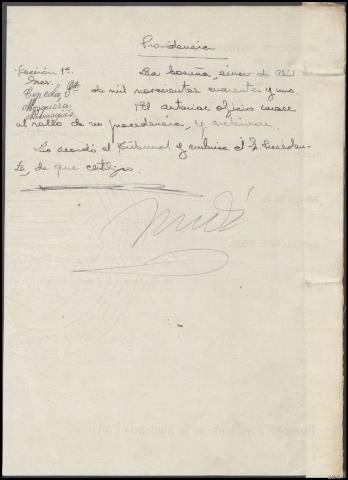 Providencia
Sección 1ª.
Sres.
Cepeda Pte
Mosquera
La Coruña, cinco de Abril
de mil novecientos cuarenta y uno.
El anterior oficio únase
al rollo de su procedencia, y archívese.
Lo acordó el Tribunal y rubrica el S. Presiden-
te, de que certifico.